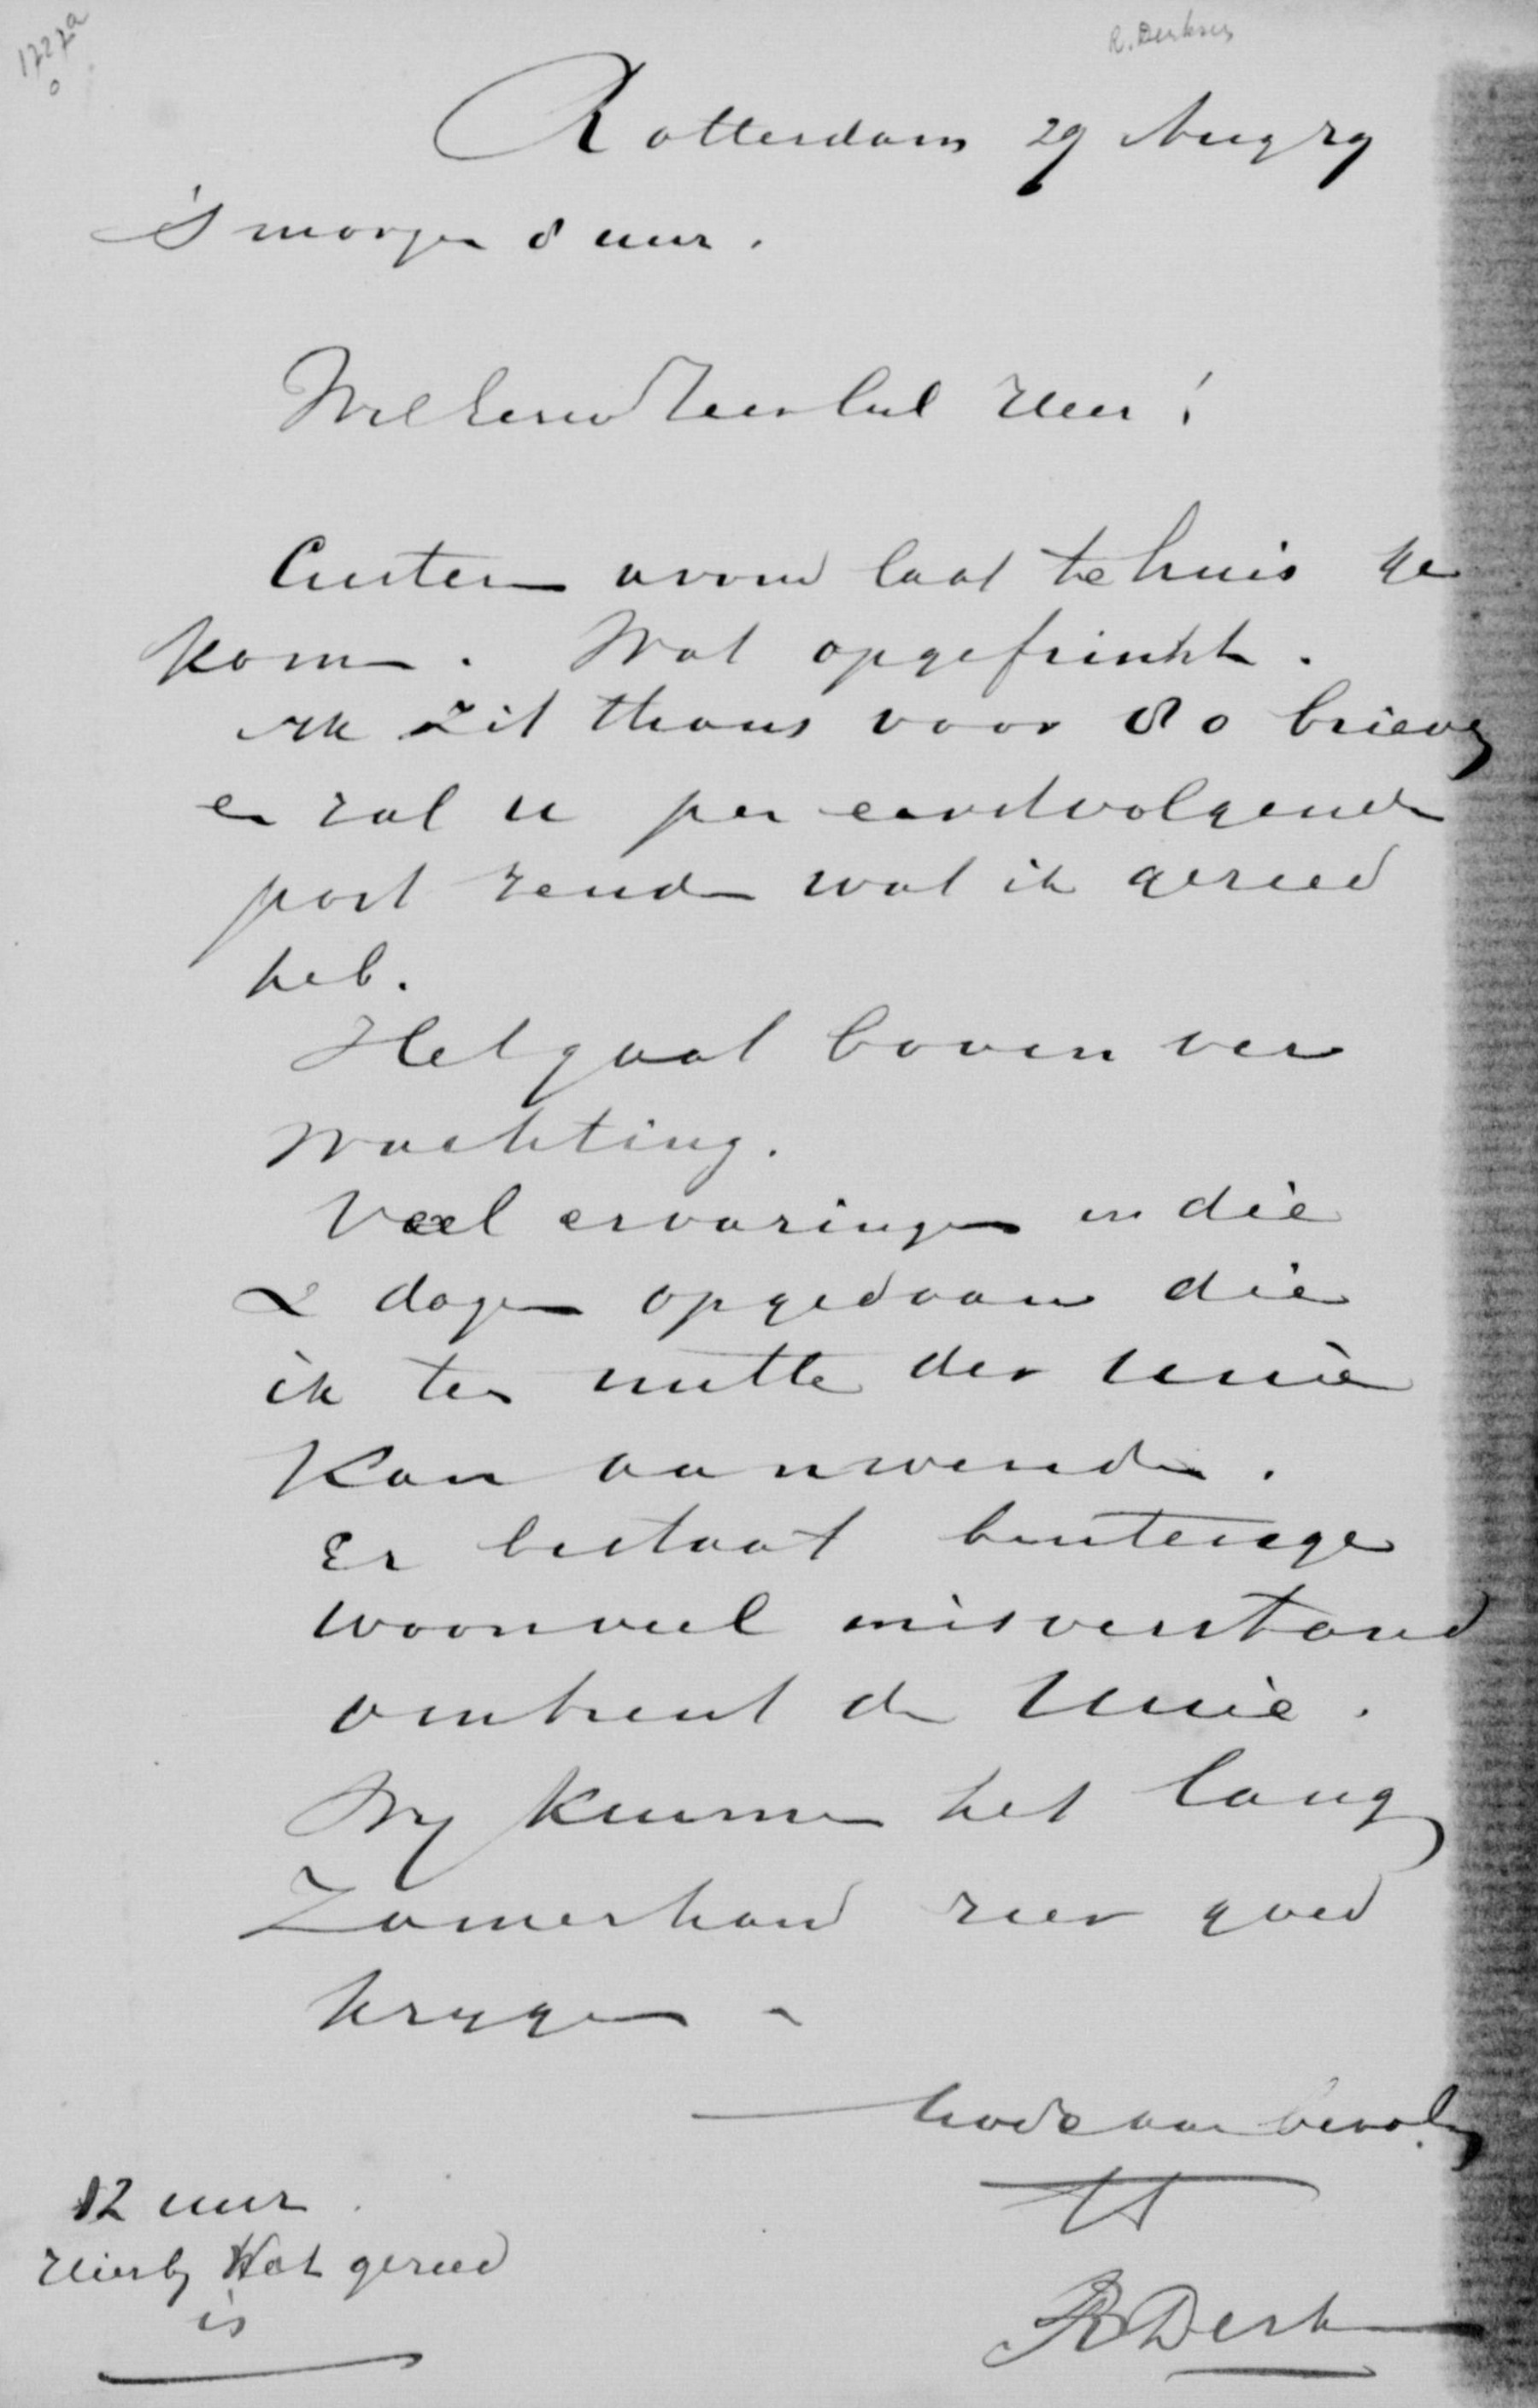 1727a
0
R. Derksen
Rotterdam 29 Aug 79
's morgen 8 uur.
WelEerw Zeer Gel Heer!
Gisteren avond laat te huis ge
komen. Wat opgefrischt.
Ik zit thans voor 80 brieven
en zal u per eerstvolgende
post zenden wat ik gereed
heb.
Het gaat boven ver
wachting.
Veel ervaringen in die
2 dagen opgedaan die
ik ten nutte der Unie
kan aanwenden.
Er bestaat buitenge
woon veel misverstand
omtrent de Unie.
Wij kunnen het lang
zamerhand zeer goed
krijgen.
Gode aanbevolen
tt
R Derksen
12 uur
Hierbij wat gereed
is